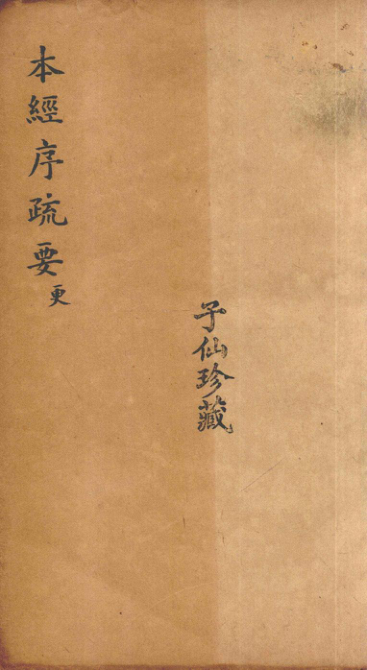 本經序疏要更
子仙珍藏